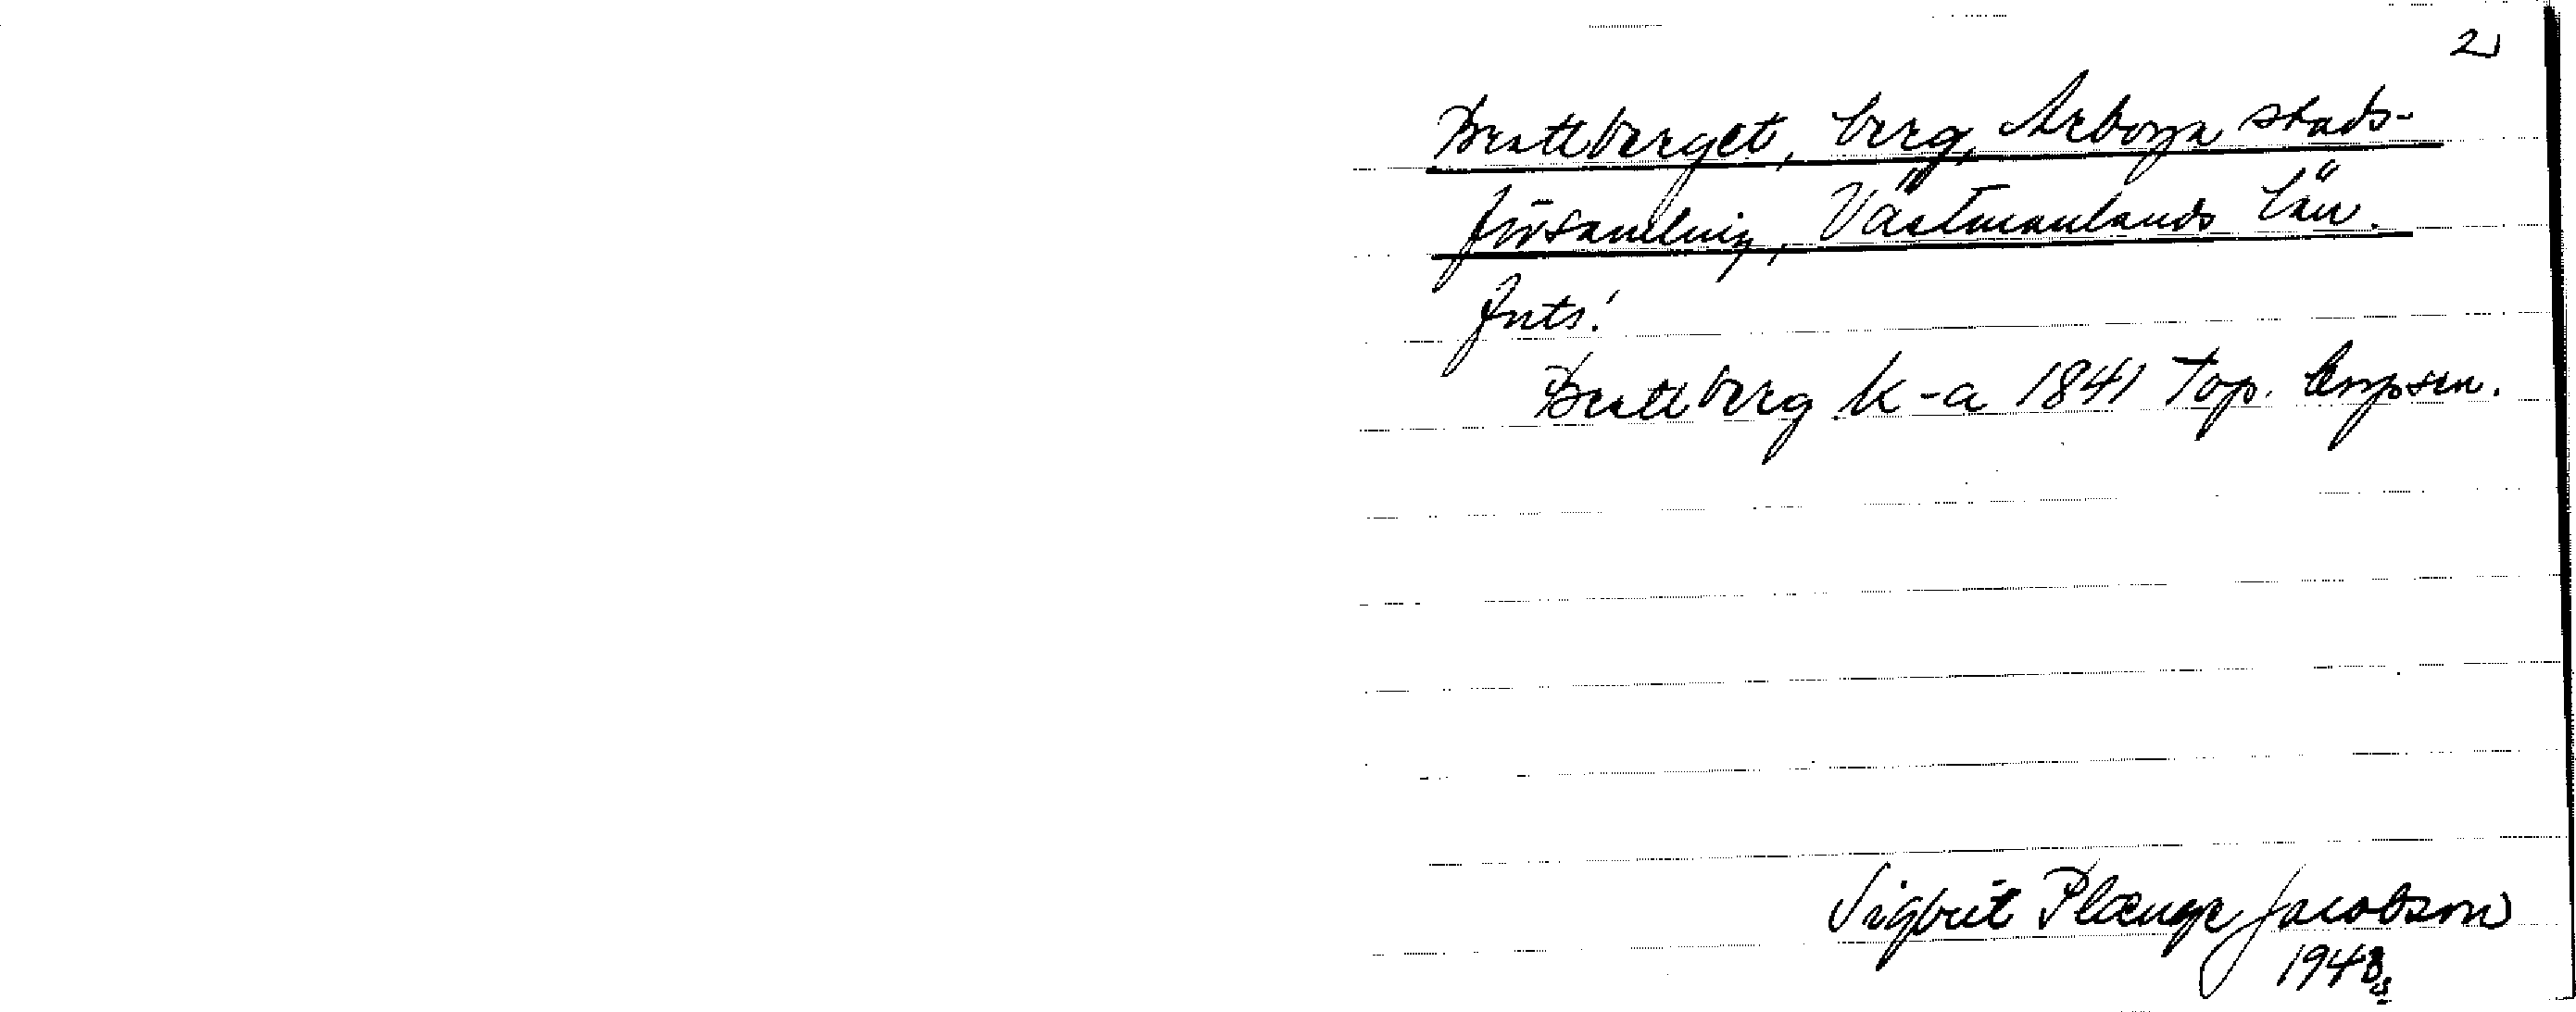 2
Brattberget, berg, Arboga stads-
församling, Västmanlands län.
Forts.
Brattberg K-a 1841 Top. Corpsen.
Sigbrit Plænge Jacobson
1948